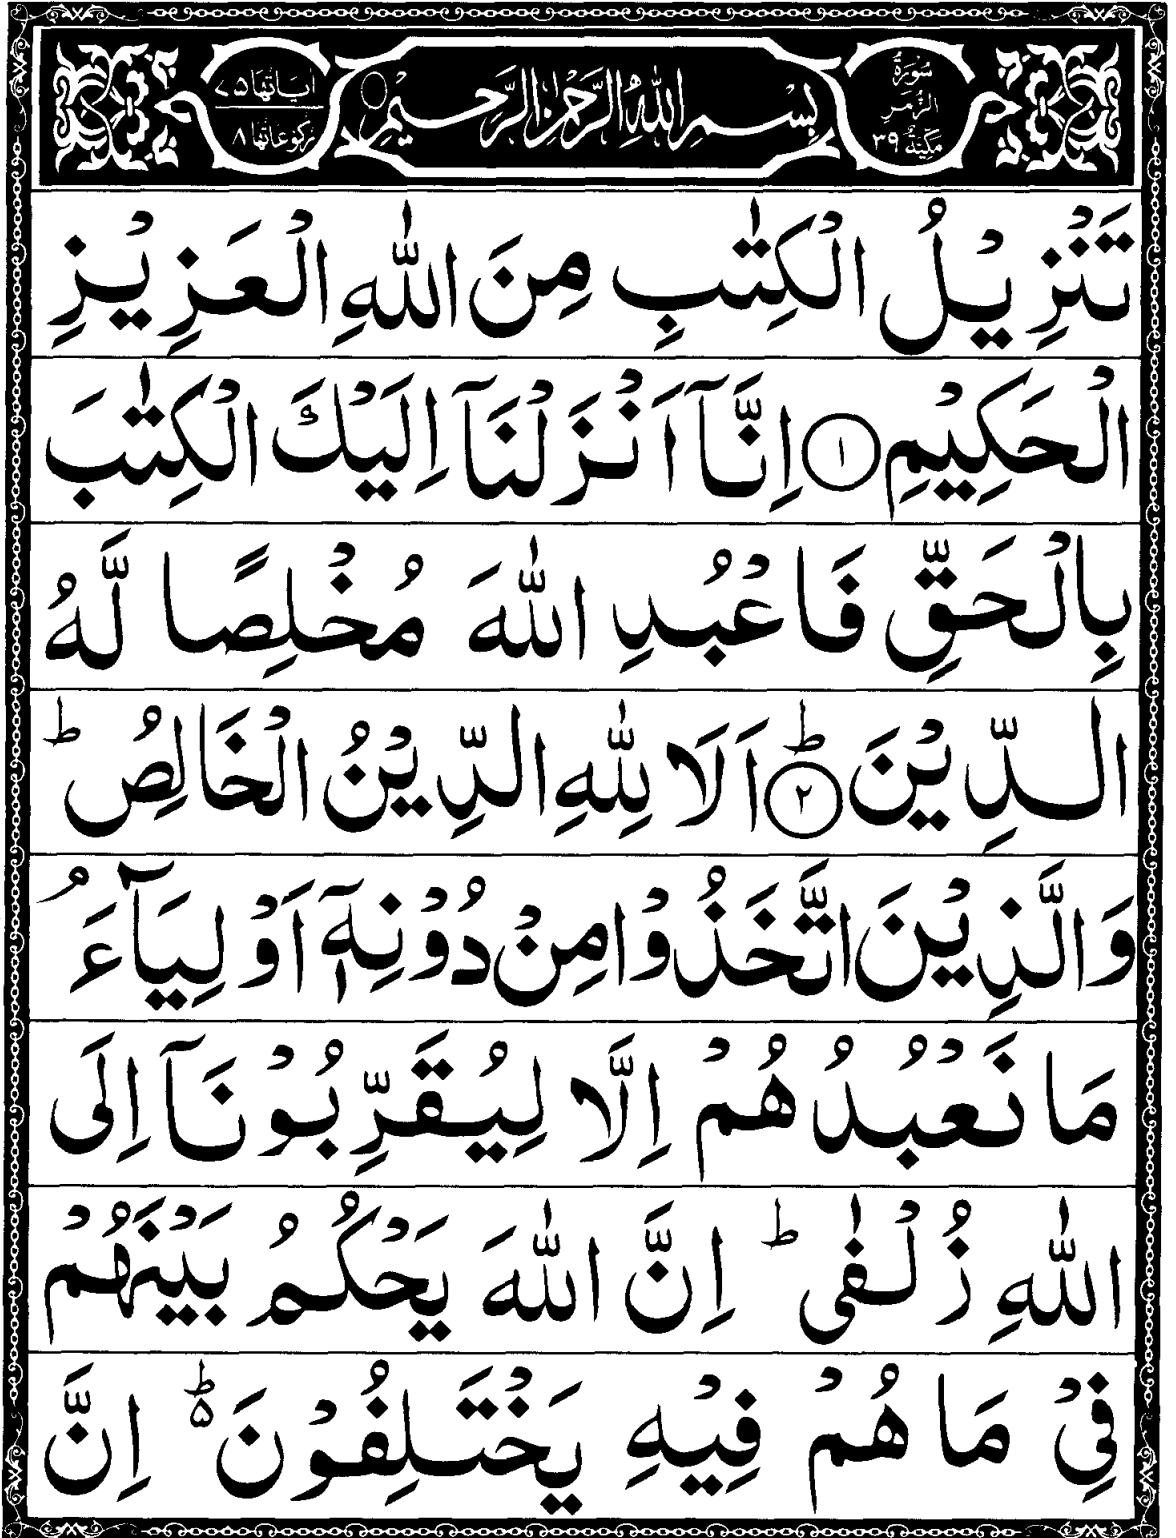 سُوْرَةُ الزُّمَرِ مَكِّيَّةٌ ٣٩
بِسْمِ اللّٰهِ الرَّحْمٰنِ الرَّحِيْمِ
اٰيَاتُهَا ٧٥
رُكُوْعَاتُهَا ٨
تَنْزِيْلُ الْكِتٰبِ مِنَ اللّٰهِ الْعَزِيْزِ
الْحَكِيْمِ ﴿١﴾ اِنَّاۤ اَنْزَلْنَاۤ اِلَيْكَ الْكِتٰبَ
بِالْحَقِّ فَاعْبُدِ اللّٰهَ مُخْلِصًا لَّهُ
الدِّيْنَ ؕ﴿٢﴾ اَلَا لِلّٰهِ الدِّيْنُ الْخَالِصُ ؕ
وَالَّذِيْنَ اتَّخَذُوْا مِنْ دُوْنِهٖۤ اَوْلِيَآءَ ۘ
مَا نَعْبُدُهُمْ اِلَّا لِيُقَرِّبُوْنَاۤ اِلَى
اللّٰهِ زُلْفٰى ؕ اِنَّ اللّٰهَ يَحْكُمُ بَيْنَهُمْ
فِيْ مَا هُمْ فِيْهِ يَخْتَلِفُوْنَ ؕ۵ اِنَّ